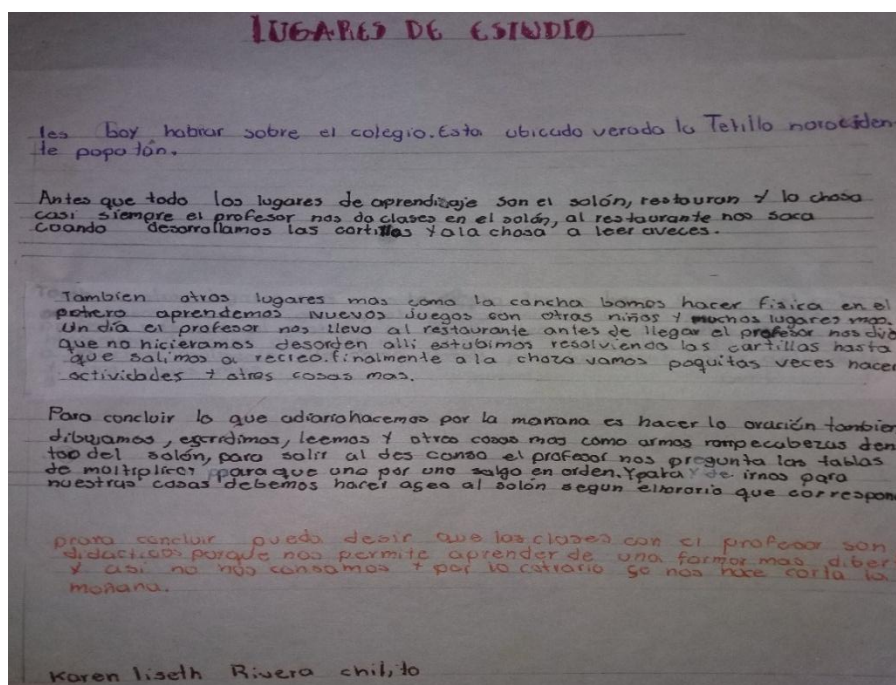 LUGARES DE ESTUDIO
les boy habrar sobre el colegio. Esta ubicado verada la Tetillo noroсciden
te popotán.
Antes que todo los lugares de aprendizaje son el salón, restauran y la chosa
casi siempre el profesor nos da clases en el salón, al restaurante nos saca
cuando desarrollamos las cartillas y a la chosa a leer aveces.
Tambien otros lugares mas como la cancha bamos hacer fisica en el
potrero aprendemos nuevos juegos con otros niños y muchos lugares mas.
Un día el profesor nos llevo al restaurante antes de llegar el profesor nos dijo
que no hicieramos desorden alli estubimos resolviendo las cartillas hasta
que salimos a recreo. finalmente a la choza vamos poquitas veces hacer
actividades y otras cosas mas.
Para concluir lo que adiario hacemos por la mañana es hacer la oración tambien
dibujamos, escridimos, leemos y otras cosas mas como armas rompecabezas den
too del salón, para salir al des canso el profesor nos pregunta las tablas
de moltiplicar para que uno por uno salga en orden. Y para de irnos para
nuestras casas debemos hacer aseo al salón segun elhorario que correspon
prara concluir puedo desir que las clases con el profesor son
didacticas porque nos permite aprender de una formar mas diber
y asi no nos cansamos y por lo cotrario se nos hace corta la
mañana.
Karen liseth Rivera chilito